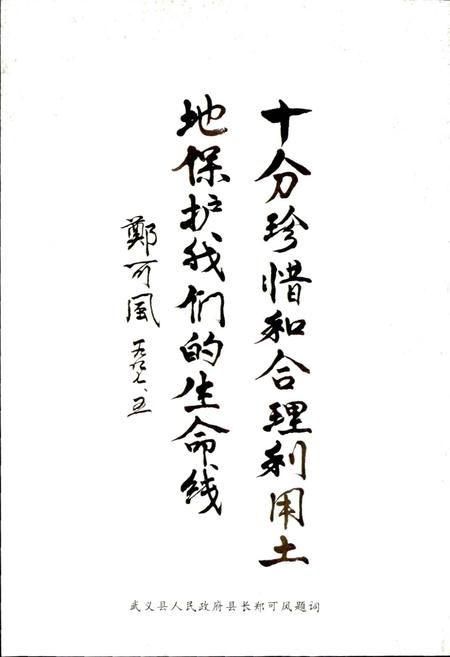 十分珍惜和合理利用土
地保护我们的生命线
鄭可風
一九九七、五
武义县人民政府县长郑可风题词